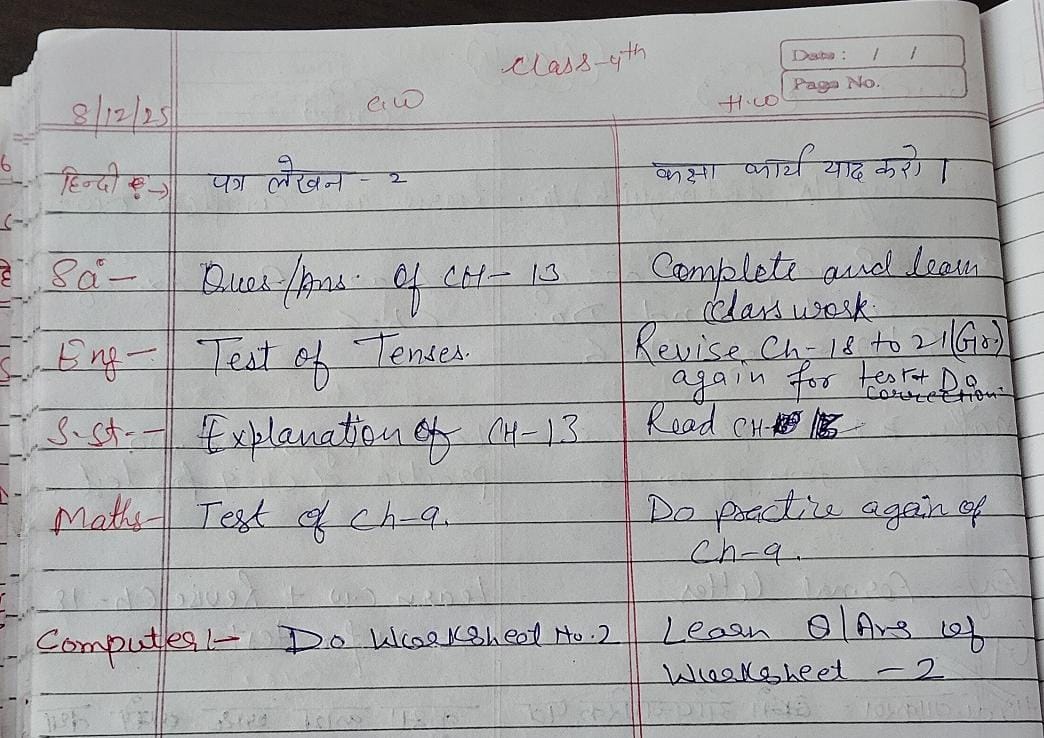 Class-4th
Date : / /
Page No.
8/12/25 C.W H.W
हिन्दी → पत्र लेखन - 2 कक्षा कार्य याद करो।
Sc - Ques/Ans. of CH-13 Complete and learn
class work.
Eng - Test of Tenses. Revise Ch-18 to 21(Gr.)
again for test + Do
correction.
S.St. - Explanation of CH-13 Read CH-13
Maths - Test of Ch-9. Do practice again of
Ch-9.
Computer :- Do Worksheet No. 2 Learn Q/Ans of
Worksheet - 2